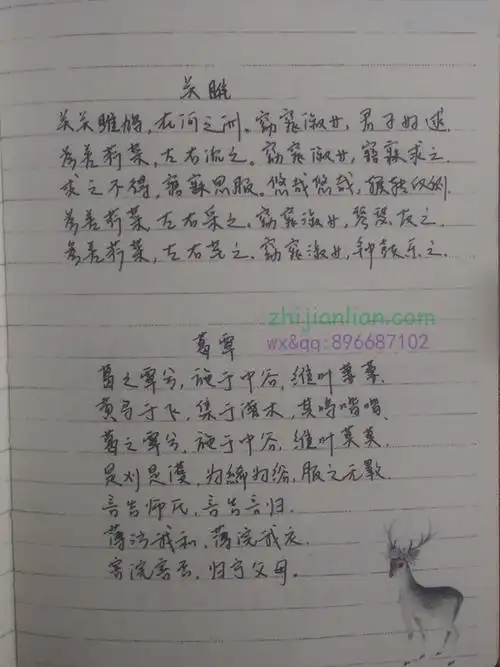 关雎
关关雎鸠,在河之洲。窈窕淑女,君子好逑.
参差荇菜,左右流之。窈窕淑女,寤寐求之.
求之不得,寤寐思服。悠哉悠哉,辗转反侧.
参差荇菜,左右采之。窈窕淑女,琴瑟友之.
参差荇菜,左右芼之.窈窕淑女,钟鼓乐之.
zhijianlian.com
wx&qq:896687102
葛覃
葛之覃兮,施于中谷,维叶萋萋.
黄鸟于飞,集于灌木,其鸣喈喈.
葛之覃兮,施于中谷,维叶莫莫.
是刈是濩,为絺为绤,服之无斁.
言告师氏,言告言归.
薄污我私,薄浣我衣.
害浣害否,归宁父母。